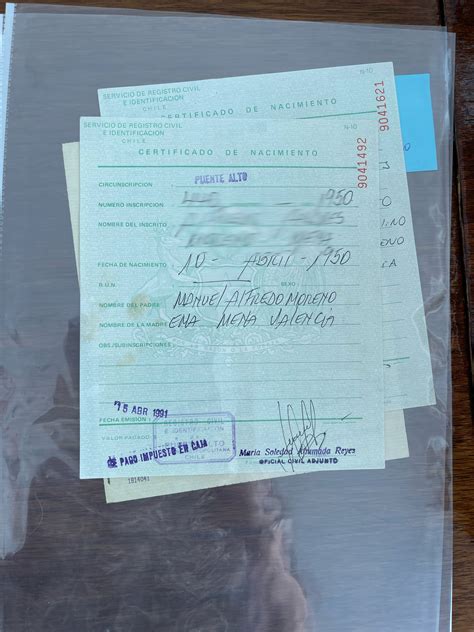 SERVICIO DE REGISTRO CIVIL
E IDENTIFICACION
CHILE
N-10
CERTIFICADO DE NACIMIENTO
9041621
SERVICIO DE REGISTRO CIVIL
E IDENTIFICACION
CHILE
N-10
CERTIFICADO DE NACIMIENTO
9041492
CIRCUNSCRIPCION
PUENTE ALTO
NUMERO INSCRIPCION
1950
NOMBRE DEL INSCRITO
FECHA DE NACIMIENTO
10 - ABRIL - 1950
R.U.N.
SEXO
NOMBRE DEL PADRE
MANUEL ALFREDO MORENO
NOMBRE DE LA MADRE
EMA MENA VALENCIA
OBS./SUBINSCRIPCIONES
FECHA EMISION
15 ABR 1991
VALOR PAGADO
REGISTRO CIVIL
E IDENTIFICACION
PUENTE ALTO
CHILE
DE PAGO IMPUESTO EN CAJA
Maria Soledad Ahumada Reyes
OFICIAL CIVIL ADJUNTO
1814041